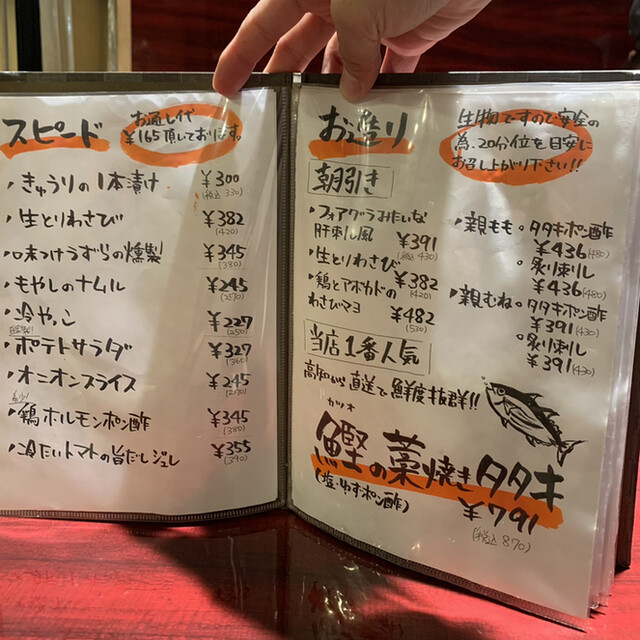 スピード
お通し代
¥165頂しております。
・きゅうりの1本漬け ¥300
(税込 330)
・生とりわさび ¥382
(420)
・味つけうずらの燻製 ¥345
(380)
・もやしのナムル ¥245
(270)
・冷やっこ ¥227
(250)
・ポテトサラダ ¥327
(360)
・オニオンスライス ¥245
(270)
・鶏ホルモンポン酢 ¥345
(380)
・冷たいトマトの旨だしジュレ ¥355
(390)
お造り
生物ですので安全の
為、20分位を目安に
お召し上がり下さい!!
朝引き
・フォアグラみたいな
肝刺し風 ¥391
(税込 430)
・生とりわさび ¥382
(420)
・鶏とアボカドの
わさびマヨ ¥482
(530)
・親もも。タタキポン酢
¥436(480)
。炙り刺し
¥436(480)
・親むね。タタキポン酢
¥391(430)
。炙り刺し
¥391(430)
当店1番人気
高知から直送で鮮度抜群!!
カツオ
鰹の藁焼きタタキ
(塩・ゆずポン酢) ¥791
(税込 870)